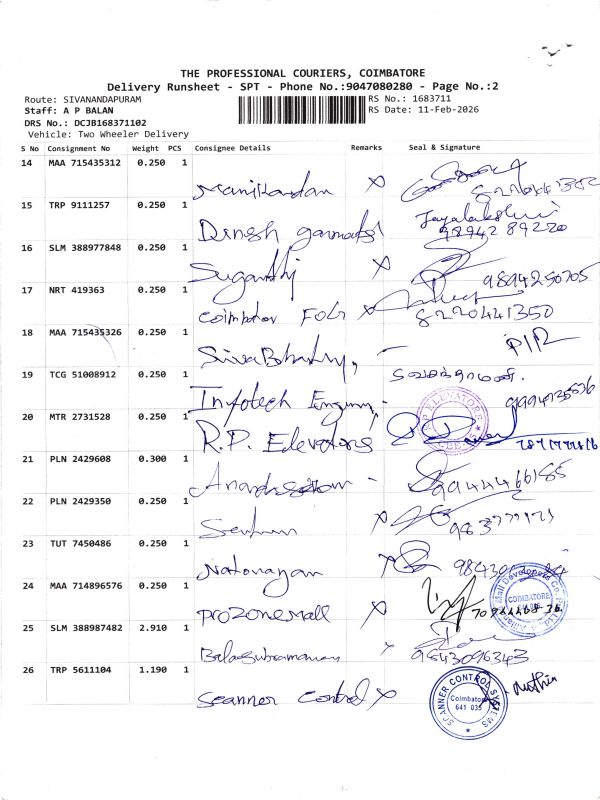 THE PROFESSIONAL COURIERS, COIMBATORE
Delivery Runsheet - SPT - Phone No.:9047080280 - Page No.:2
Route: SIVANANDAPURAM
RS No.: 1683711
Staff: A P BALAN
RS Date: 11-Feb-2026
DRS No.: DCJB168371102
Vehicle: Two Wheeler Delivery
S No Consignment No Weight PCS Consignee Details Remarks Seal & Signature
14 MAA 715435312 0.250 1
Manikandan X
15 TRP 9111257 0.250 1
Dinesh
98942 89220
16 SLM 388977848 0.250 1
Suganthi X 9894250705
17 NRT 419363 0.250 1
Coimbatore X 8220441350
18 MAA 715435326 0.250 1
P/R
19 TCG 51008912 0.250 1
Infotech
20 MTR 2731528 0.250 1
R.P. Elevators
21 PLN 2429608 0.300 1
9944466185
22 PLN 2429350 0.250 1
X
23 TUT 7450486 0.250 1
24 MAA 714896576 0.250 1
Prozone Mall X
COIMBATORE
25 SLM 388987482 2.910 1
Balasubramanian 9543096343
26 TRP 5611104 1.190 1
Scanner Control X
SCANNER CONTROL SYSTEMS
Coimbatore
641 035